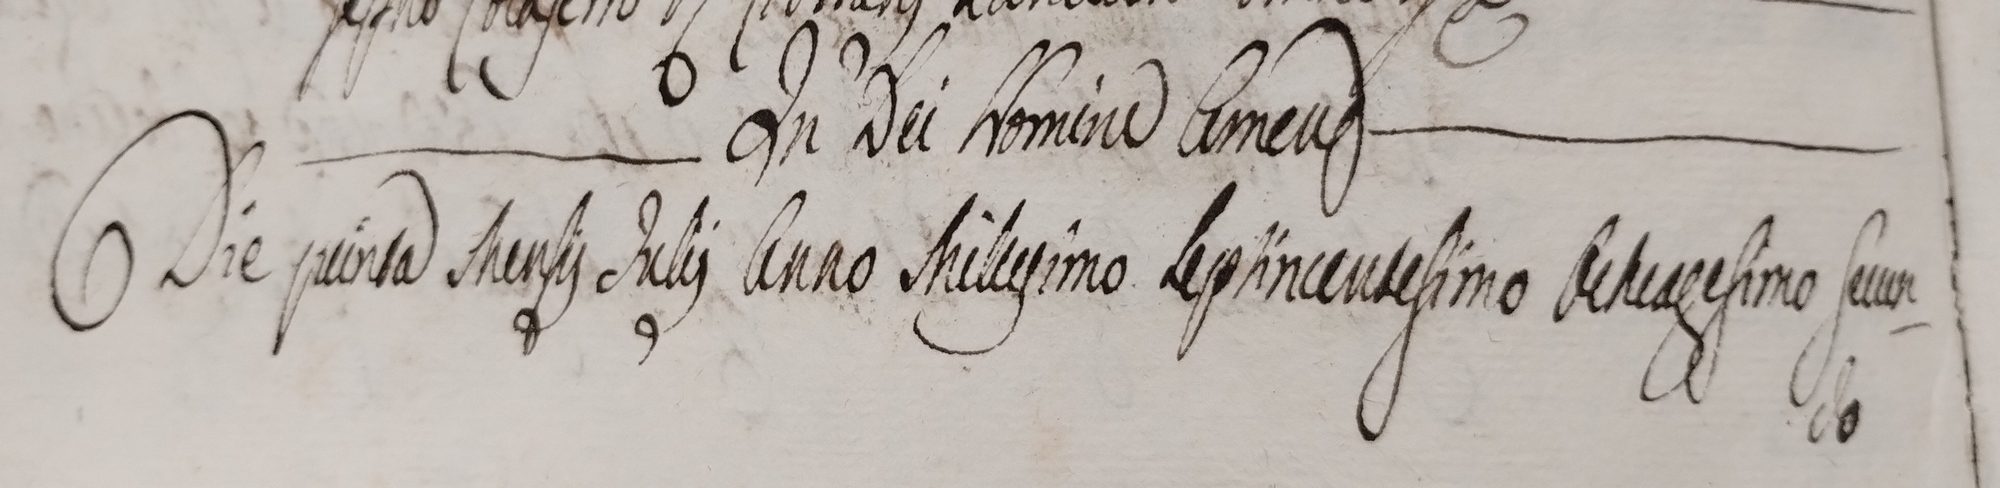 In Dei Nomine Amen
Die quinta Mensis Julij Anno Millesimo Septincentesimo Octuagesimo Secun-
do